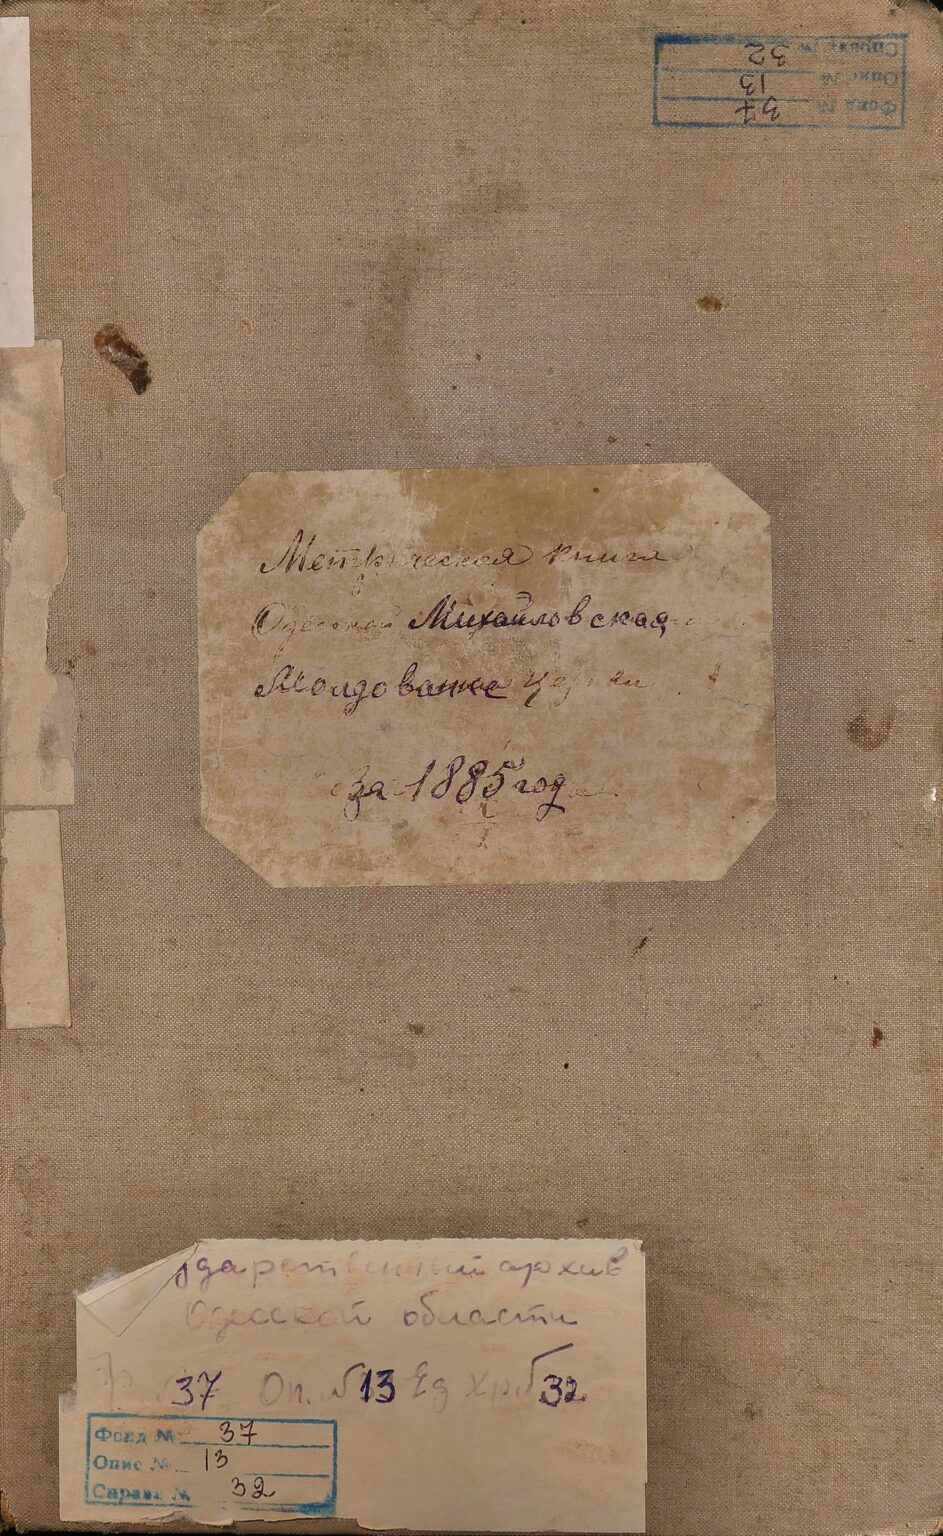 Справа № 32
Опис № 13
Фонд № 37
Метрическая книга
Одесской Михайловская
Молдованке церкви
за 1885 год
ударственный архив
Одесской области
37 Оп. № 13 Ед Хр № 32
Фонд № 37
Опис № 13
Справа № 32